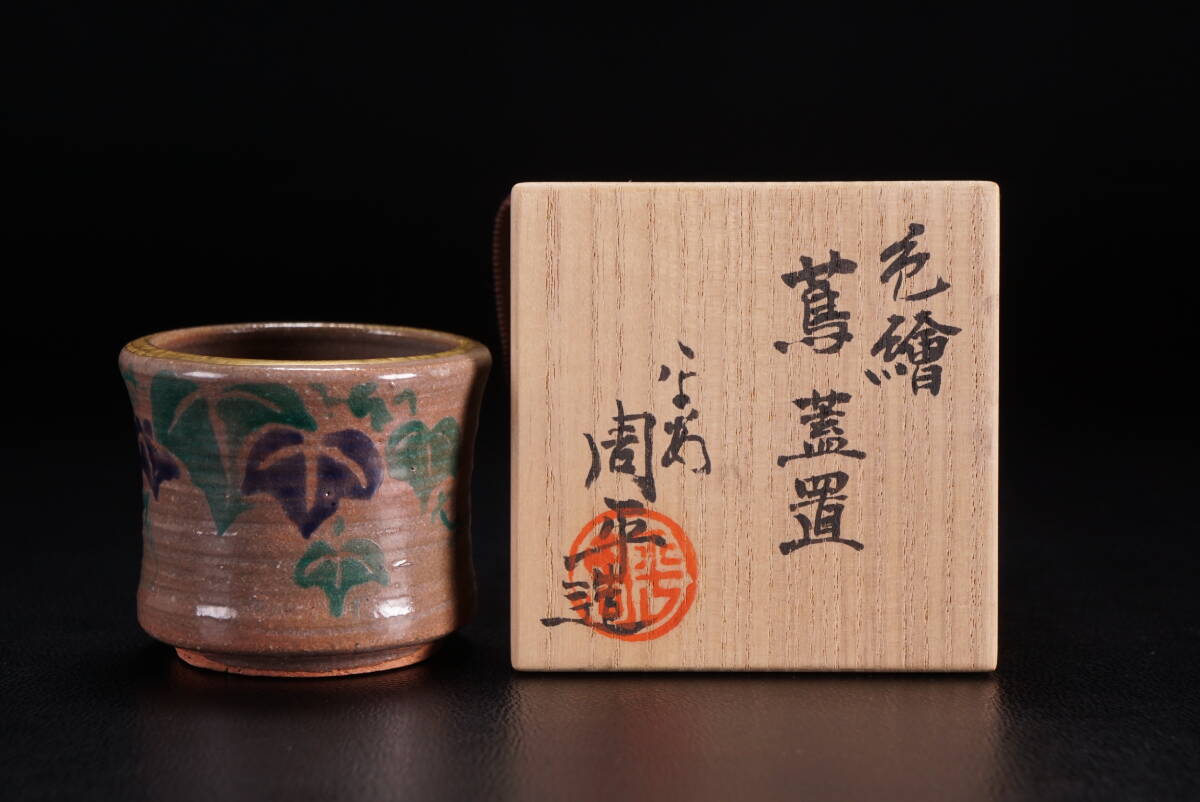 色繪
蔦 蓋置
周平造